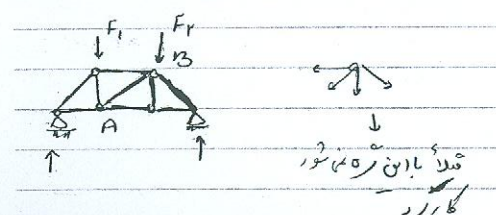 F₁ F₂
B
A
قبلاً با این گره نمی‌شود
کار کرد